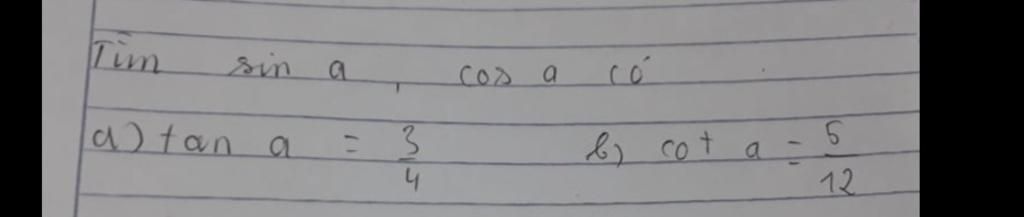 Tìm sin a, cos a có
a) tan a = 3/4 b) cot a = 5/12